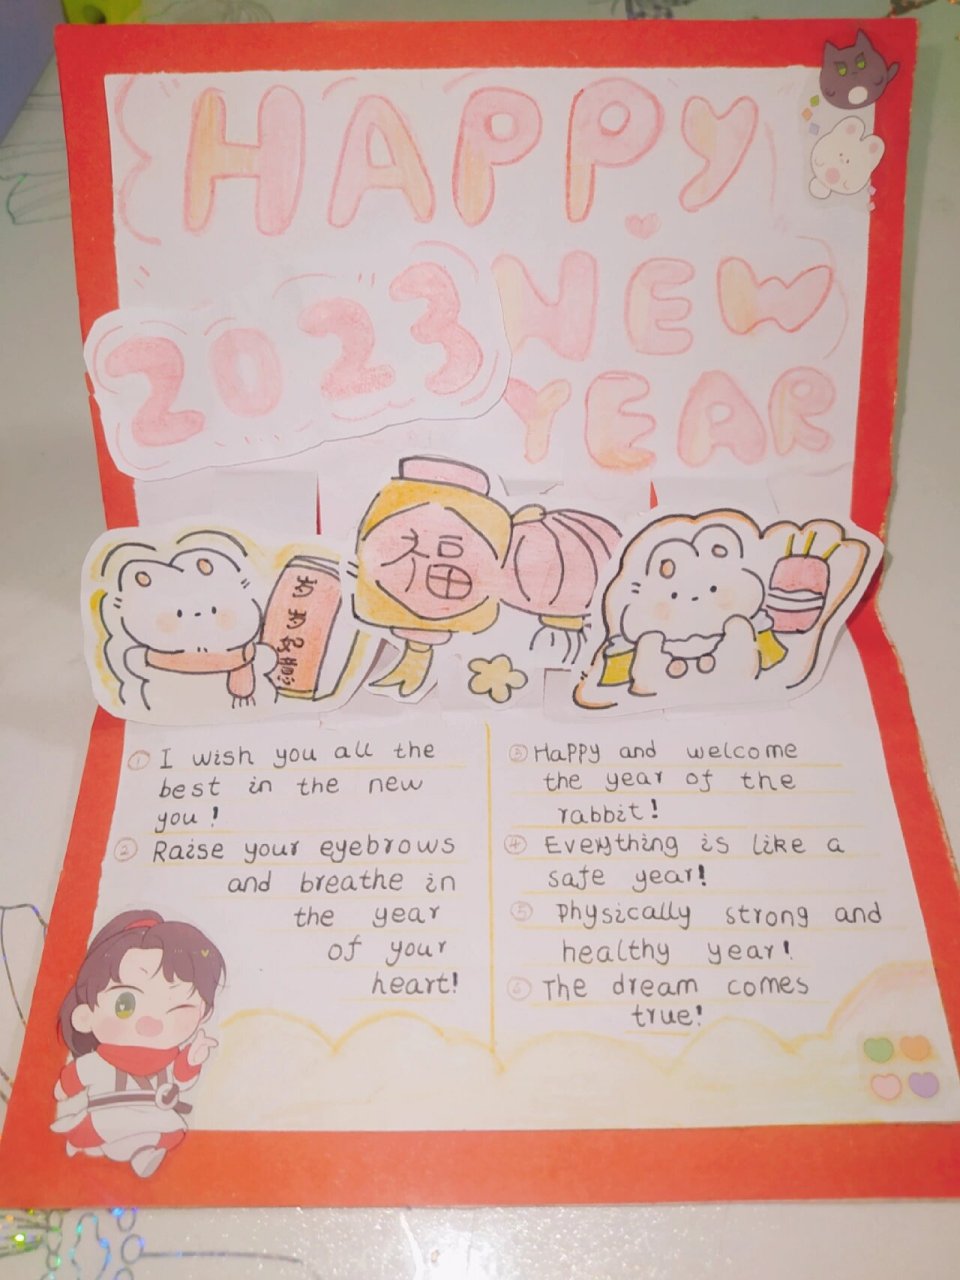 HAPPY
NEW
2023
YEAR
福
① I wish you all the
best in the new
you!
② Raise your eyebrows
and breathe in
the year
of your
heart!
③ Happy and welcome
the year of the
rabbit!
④ Everything is like a
safe year!
⑤ Physically strong and
healthy year!
⑥ The dream comes
true!